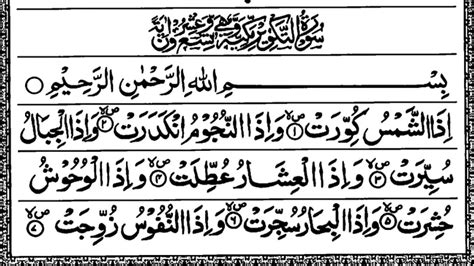 سُوْرَةُ التَّكْوِيْرِ مَكِّيَّةٌ وَّهِيَ تِسْعٌ وَّعِشْرُوْنَ اٰيَةً
بِسْمِ اللهِ الرَّحْمٰنِ الرَّحِيْمِ ○
اِذَا الشَّمْسُ كُوِّرَتْ ۝۱ وَاِذَا النُّجُوْمُ انْكَدَرَتْ ۝۲ وَاِذَا الْجِبَالُ
سُيِّرَتْ ۝۳ وَاِذَا الْعِشَارُ عُطِّلَتْ ۝۴ وَاِذَا الْوُحُوْشُ
حُشِرَتْ ۝۵ وَاِذَا الْبِحَارُ سُجِّرَتْ ۝۶ وَاِذَا النُّفُوْسُ زُوِّجَتْ ۝۷